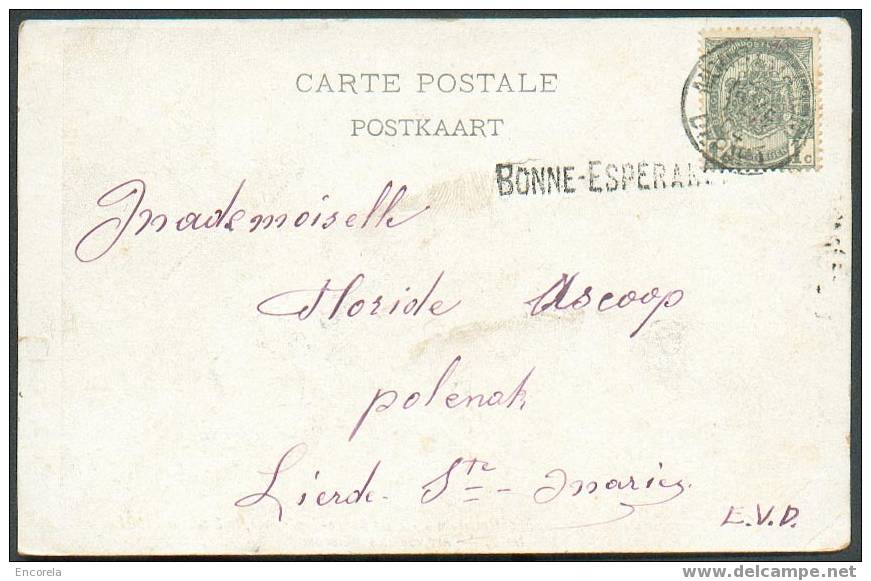 CARTE POSTALE
POSTKAART
BONNE-ESPERAN
Mademoiselle
Floride Ascoop
polenak
Lierde-Ste-Marie
E.V.D.
Encorela
www.delcampe.net